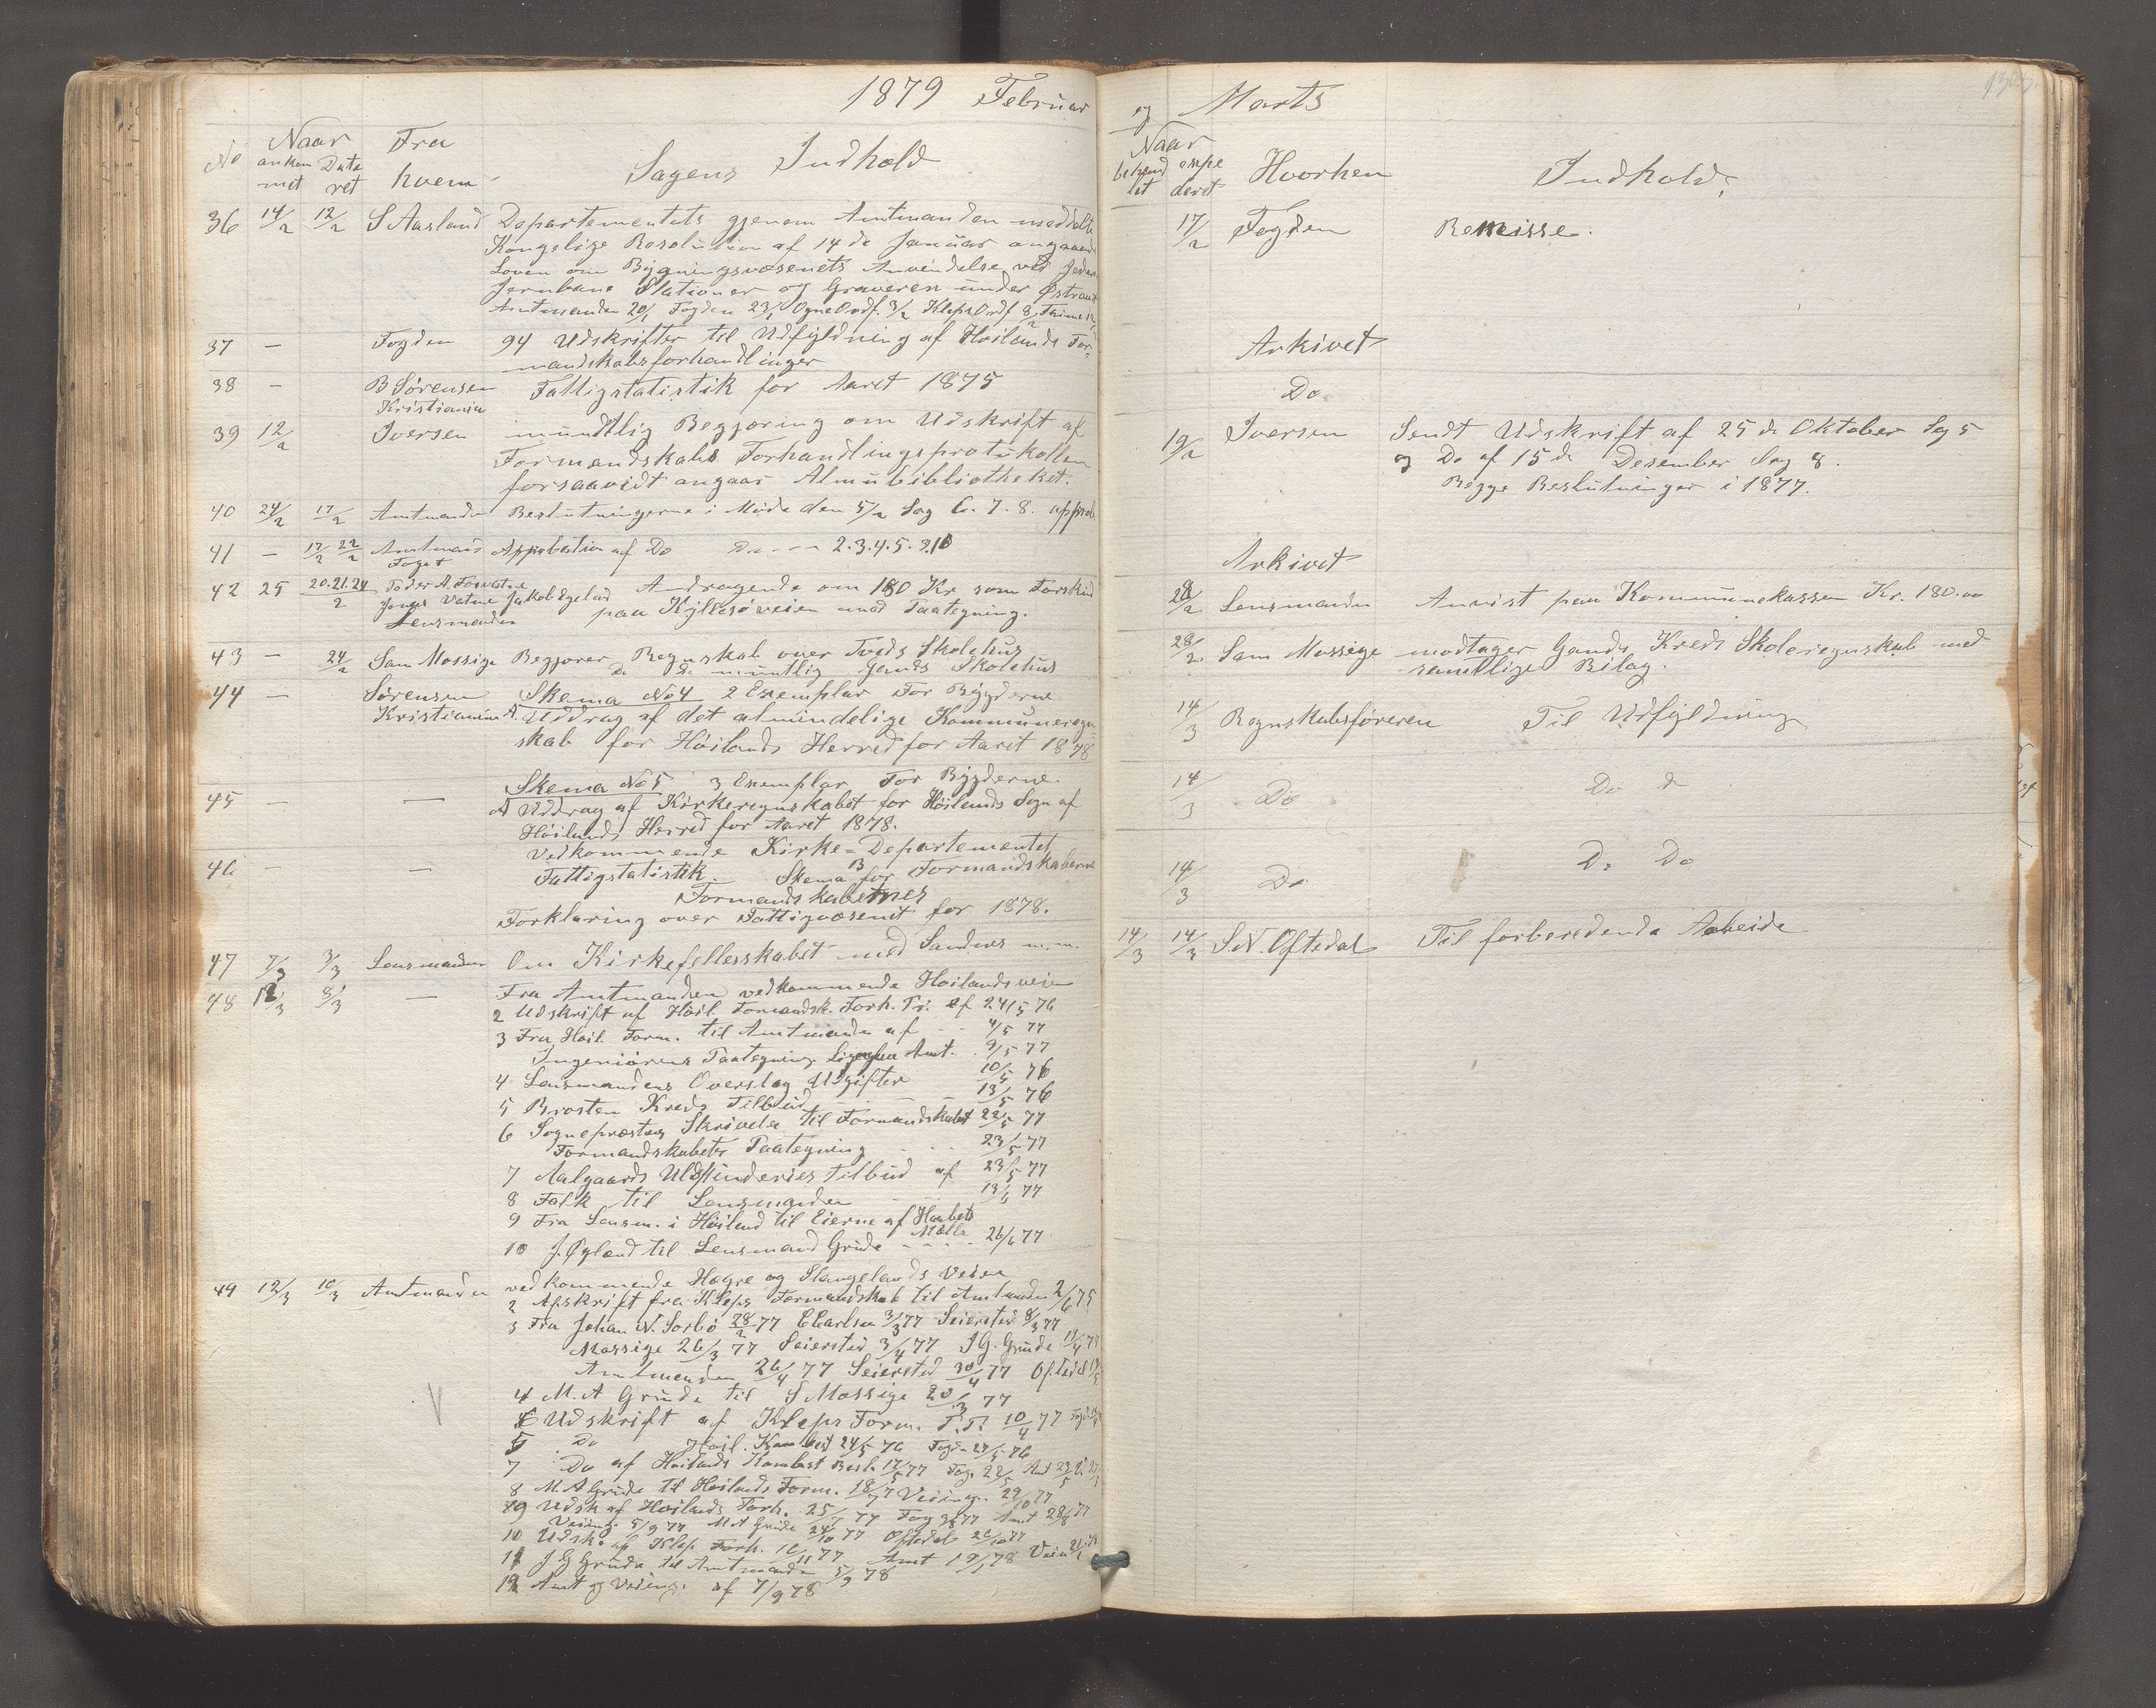 1879 Februar
No
Naar
ankommet
Dateret
Fra hvem
Sagens Indhold
36 14/2 12/2 S Aasland Departementets gjenem Amtmanden meddelte
Kongelige Resolution af 14de Januar angaaende
Loven om Bygningsvæsenets Anvendelse ved Jæder
Jernbane Stationer og Graveren under
Amtmanden 20/1 Fogden 23/1 Ogne Ordf. 3/2 Klep Ordf 8/2 Thime 12/2
37 — Fogden 94 Udskrifter til Udfyldning af Høilands For-
mandskabsforhandlinger
38 — B Sørensen Kristiania Fattigstatistik for Aaret 1875
39 12/2 Iversen mundtlig Begjæring om Udskrift af
Formandskabs Forhandlingsprotokollen
forsaavidt angaar Almubibliotheket.
40 24/2 17/2 Amtmanden Beslutningerne i Møde den 5/2 Sag 6. 7. 8. approb
41 — 17/2 22/2 Amtmand Foget Approbation af Do Do — 2.3.4.5. 9.10
42 25 20.21.24/2 Peder A. Jonas Vatne Jakob Øgelad Lensmanden Andragende om 180 Kr som Forskud
paa Kyllesøveien med Paategning.
43 — 24/2 Sam Mossige Begjærer Regnskab over Tveds Skolehus
Do Do mundtlig Gands Skolehus
44 — Sørensen Kristiania Skema No 4 2 Exemplar For Bygderne
A Uddrag af det almindelige Kommuneregn-
skab for Høilands Herred for Aaret 1878
45 — — Skema No 5 3 Exemplar For Bygderne
A Uddrag af Kirkeregnskabet for Høilands Sogn af
Høilands Herred for Aaret 1878.
vedkommende Kirke-Departementet
46 — — Fattigstatistik. Skema B for Formandskaberne
Formandskabernes
Forklaring over Fattigvæsenet for 1878.
47 7/3 3/3 Lensmanden Om Kirkefellesskabet med Sandnes m.m.
48 12/3 8/3 — Fra Amtmanden vedkommende Høilandsveien
2 Udskrift af Høil Formandsk. Forh. Pr. af 24/5 76
3 Fra Høil. Form. til Amtmanden af - - 4/5 77
Ingeniørens Paategning Amt. . 9/5 77
4 Lensmandens Overslag Udgifter 10/5 76
5 Brosten Kreds Tilbud - - - 13/5 76
6 Sogneprestens Skrivelse til Formandskabet 22/5 77
Formandskabets Paategning . . . 23/5 77
7 Aalgaards Uldspinderies tilbud af 23/5 77
8 Falk til Lensmanden - - 13/6 77
9 Fra Lensm. i Høiland til Eierne af
Mølle
10 J. Øgland til Lensmand Grude - - - - 26/6 77
49 12/3 10/3 Amtmanden vedkommende Høgre og Stangelands Veien
2 Afskrift fra Kleps Formandskab til Amtmanden 2/6 75
3 Fra Johan N. Sorbö 28/2 77 E Carlsen 3/3 77 Seiersted 8/3 77
Mossige 26/3 77 Seiersted 3/4 77 J G. Grude 19/4 77
Amtmanden 26/4 77 Seiersted 30/4 77 Oftedal
4 M. A Grude til S Mossige 20/3 77
6 Udskrift af Kleps Form. P.P. 10/4 77
5 Do Høil. 24/5 76 Fogd 27/5 76
7 Do af Høilands Kombest Besl. 17/5 77 Fog. 22/5 Amt 29/5
8 M. A Grude til Høilands Form. 18/7 Veiing. 29/10 77
9 Udsk af Høilands Forh. 25/7 77 Fog 77 Amt 28/8 77
Veiing. 5/9 77 M A Grude 24/10 77 Oftedal 26/10 77
10 Udsk. af Klep Forh. 16/11 77 Amt 19/1 78 Veii 21/1 78
11 J G Grude til Amtmanden 5/9 78
12 Amt og Veiing. af 7/9 78
V
og Marts
Naar
behandlet
expederet
Hvorhen
Indhold,
17/2 Fogden Remisse.
Arkivet
Do
19/2 Iversen Sendt Udskrift af 25de Oktober Sag 5
og Do af 15de Desember Sag 8.
Begge Beslutninger i 1877.
Arkivet
28/2 Lensmanden Anvist paa Kommunekassen Kr. 180.00
28/2 Sam Mossige modtager Gands Kreds Skoleregnskab med
samtlige Bilag.
14/3 Regnskabsføreren Til Udfyldning
14/3 Do Do do
14/3 Do Do Do
14/3 14/3 S.N. Oftedal Til forberedende Arbeide